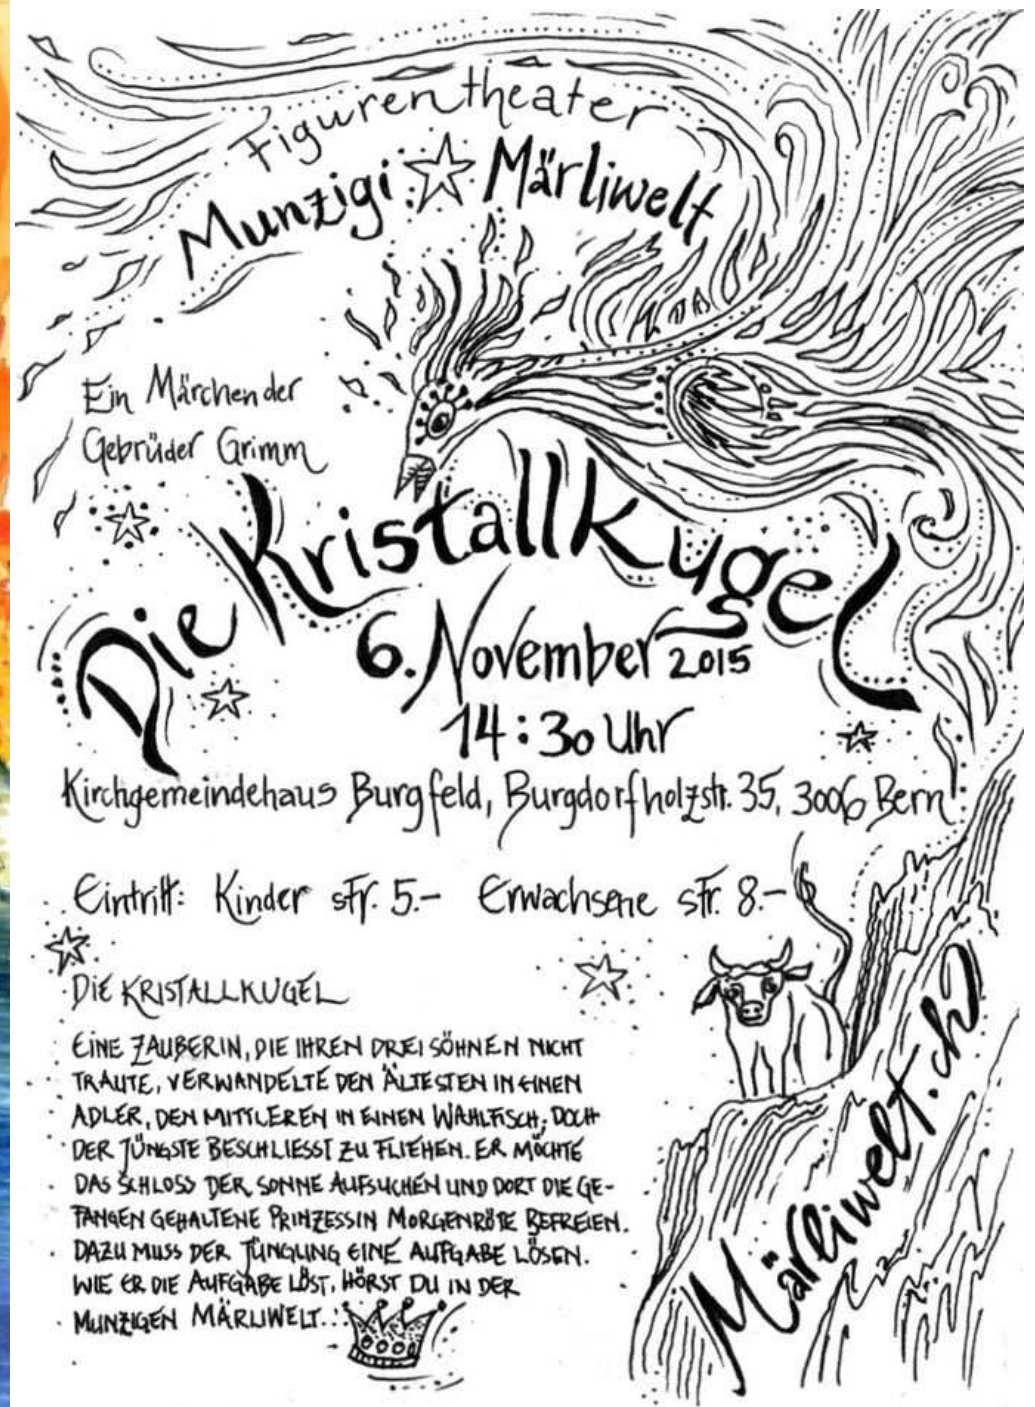 Figurentheater
Munzigi Märliwelt
Ein Märchen der
Gebrüder Grimm
Die Kristallkugel
6. November 2015
14:30 Uhr
Kirchgemeindehaus Burgfeld, Burgdorfholzstr. 35, 3006 Bern
Eintritt: Kinder sFr. 5.- Erwachsene sFr. 8.-
DIE KRISTALLKUGEL
EINE ZAUBERIN, DIE IHREN DREI SÖHNEN NICHT
TRAUTE, VERWANDELTE DEN ÄLTESTEN IN EINEN
ADLER, DEN MITTLEREN IN EINEN WAHLFISCH; DOCH
DER JÜNGSTE BESCHLIESST ZU FLIEHEN. ER MÖCHTE
DAS SCHLOSS DER SONNE AUFSUCHEN UND DORT DIE GE-
FANGEN GEHALTENE PRINZESSIN MORGENRÖTE BEFREIEN.
DAZU MUSS DER JÜNGLING EINE AUFGABE LÖSEN.
WIE ER DIE AUFGABE LÖST, HÖRST DU IN DER
MUNZIGEN MÄRLIWELT...
Märliwelt.ch